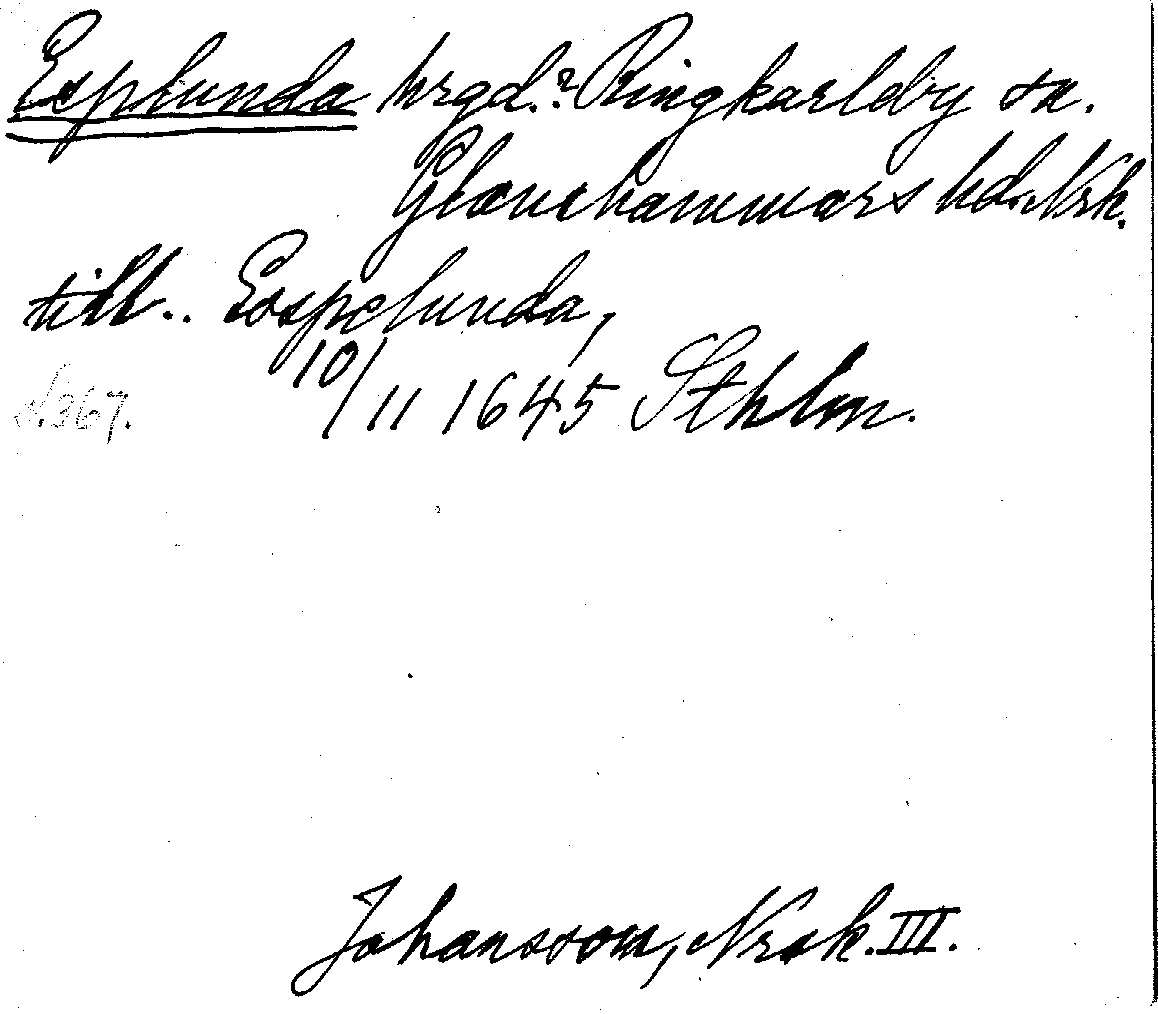 Esplunda hrgd.? Ringkarleby sn.
Glanshammars hd. Nrk.
till.. Esspelunda,
10/11 1645 Sthlm.
s. 367.
Johansson, Nrsk. III.